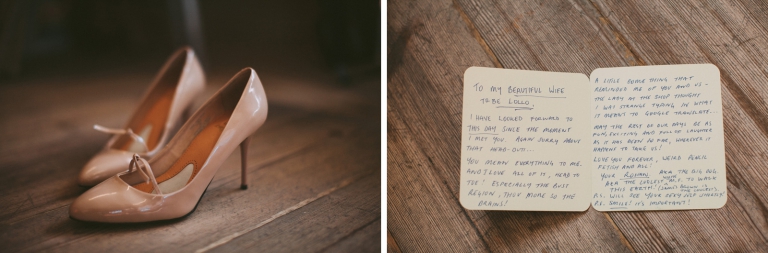 TO MY BEAUTIFUL WIFE
TO BE LOLLO,
I HAVE LOOKED FORWARD TO
THIS DAY SINCE THE MOMENT
I MET YOU. AGAIN SORRY ABOUT
THAT HEAD-BUTT...
YOU MEAN EVERYTHING TO ME.
AND I LOVE ALL OF IT, HEAD TO
TOE! ESPECIALLY THE BUST
REGION, THEY MORE SO THE
BRAINS!
A LITTLE SOMETHING THAT
REMINDED ME OF YOU AND US -
THE LADY IN THE SHOP THOUGHT
I WAS STRANGE TYPING IN WHAT
IT MEANT TO GOOGLE TRANSLATE...
MAY THE REST OF OUR DAYS BE AS
FUN, EXCITING AND FULL OF LAUGHTER
AS IT HAS BEEN SO FAR, WHEREVER IT
HAPPENS TO TAKE US!
LOVE YOU FOREVER, WEIRD
FETISH AND ALL!
YOUR AKA THE BIG DOG
AKA THE LUCKIEST MAN TO WALK
THIS EARTH!
P.S. WILL SEE YOUR VERY SHORTLY
P.S. SMILE! IT'S IMPORTANT!